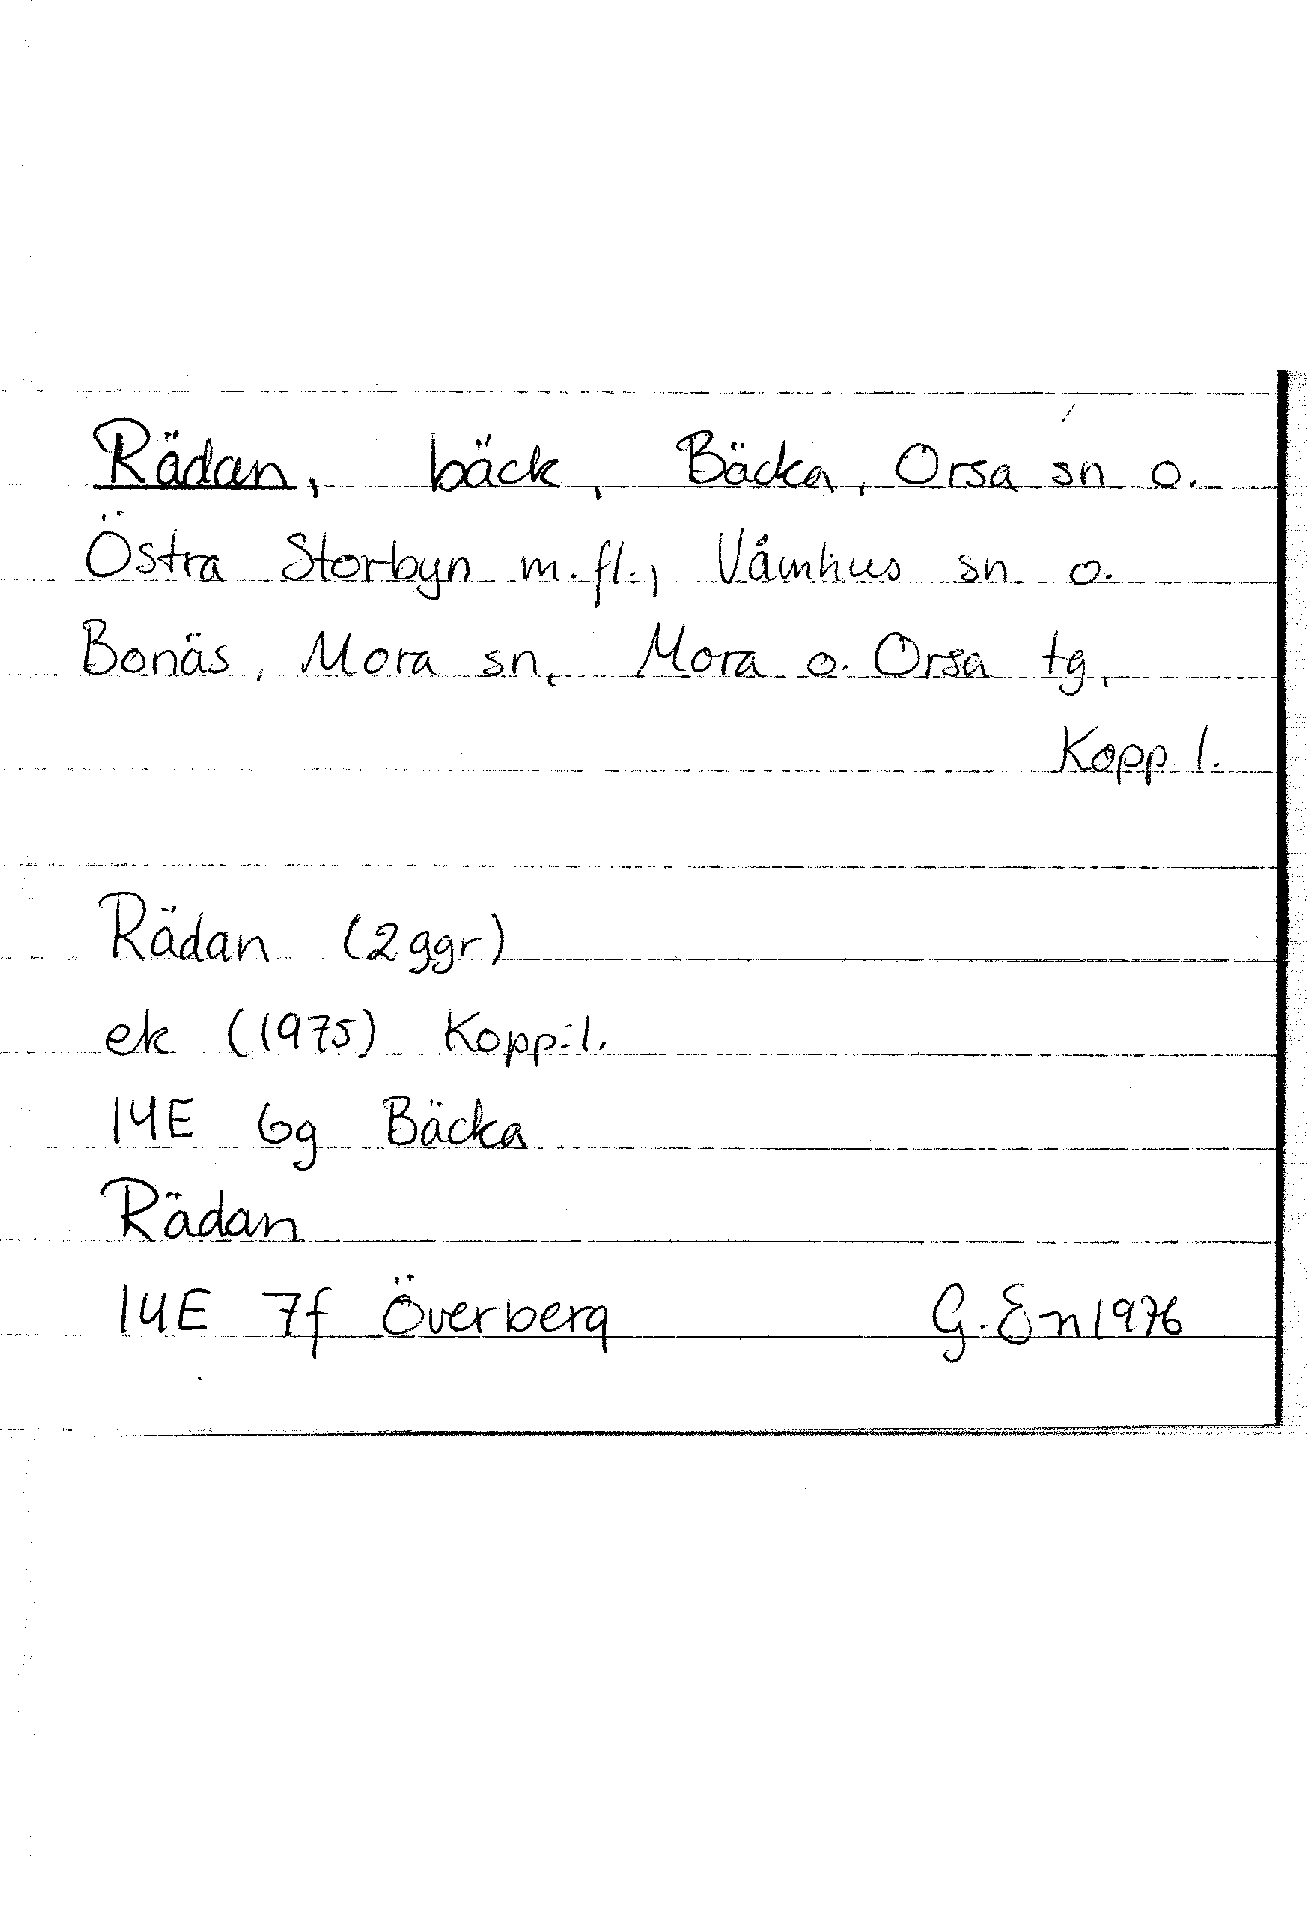 Rädan, bäck, Bäcka, Orsa sn o.
Östra Storbyn m.fl., Våmhus sn o.
Bonäs, Mora sn, Mora o. Orsa tg,
Kopp l.
Rädan (2 ggr)
ek (1975) Kopp. l.
14E 6g Bäcka
Rädan
14E 7f Överberg G. En 1976